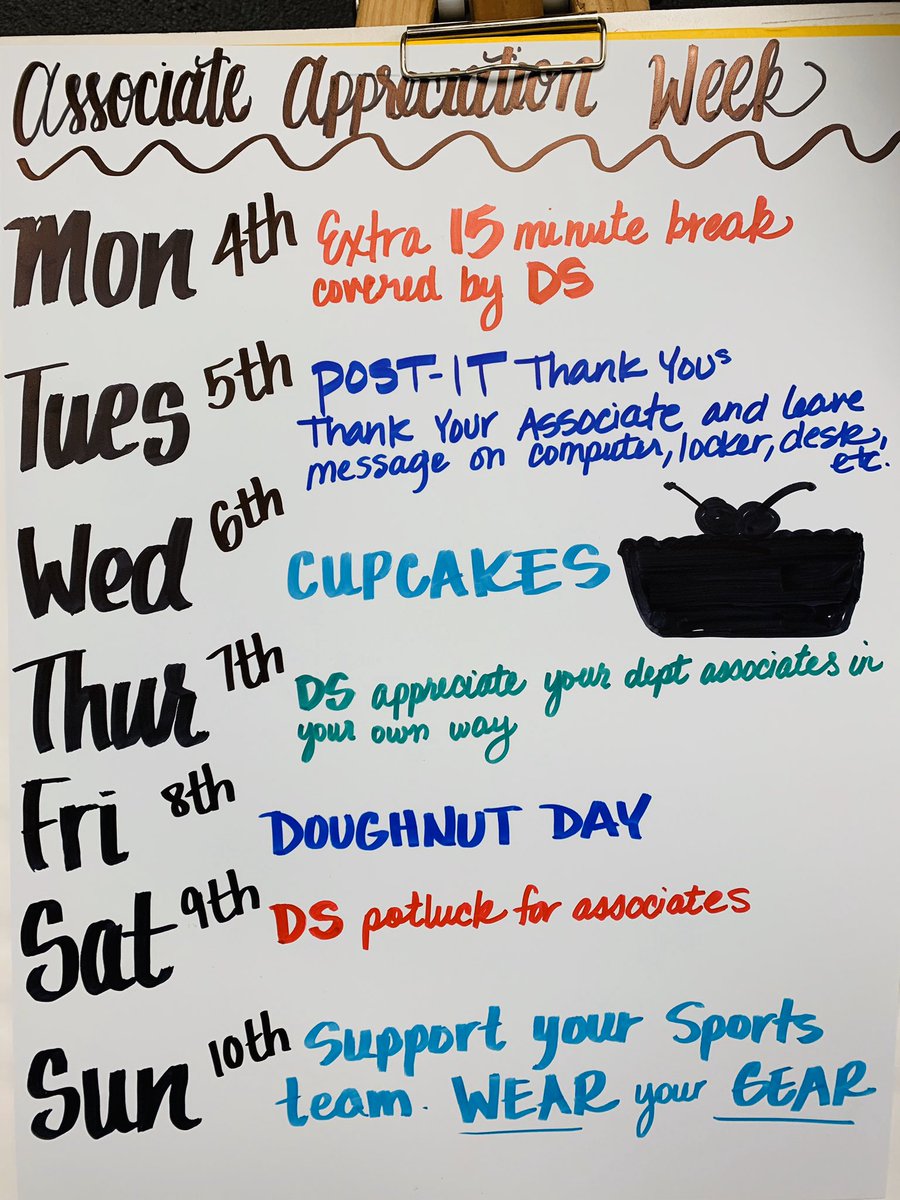 Associate Appreciation Week
Mon 4th Extra 15 minute break
covered by DS
Tues 5th POST-IT Thank Yous
Thank Your Associate and leave
message on computer, locker, desk,
etc.
Wed 6th CUPCAKES
Thur 7th DS appreciate your dept associates in
your own way
Fri 8th DOUGHNUT DAY
Sat 9th DS potluck for associates
Sun 10th Support your Sports
team. WEAR your GEAR